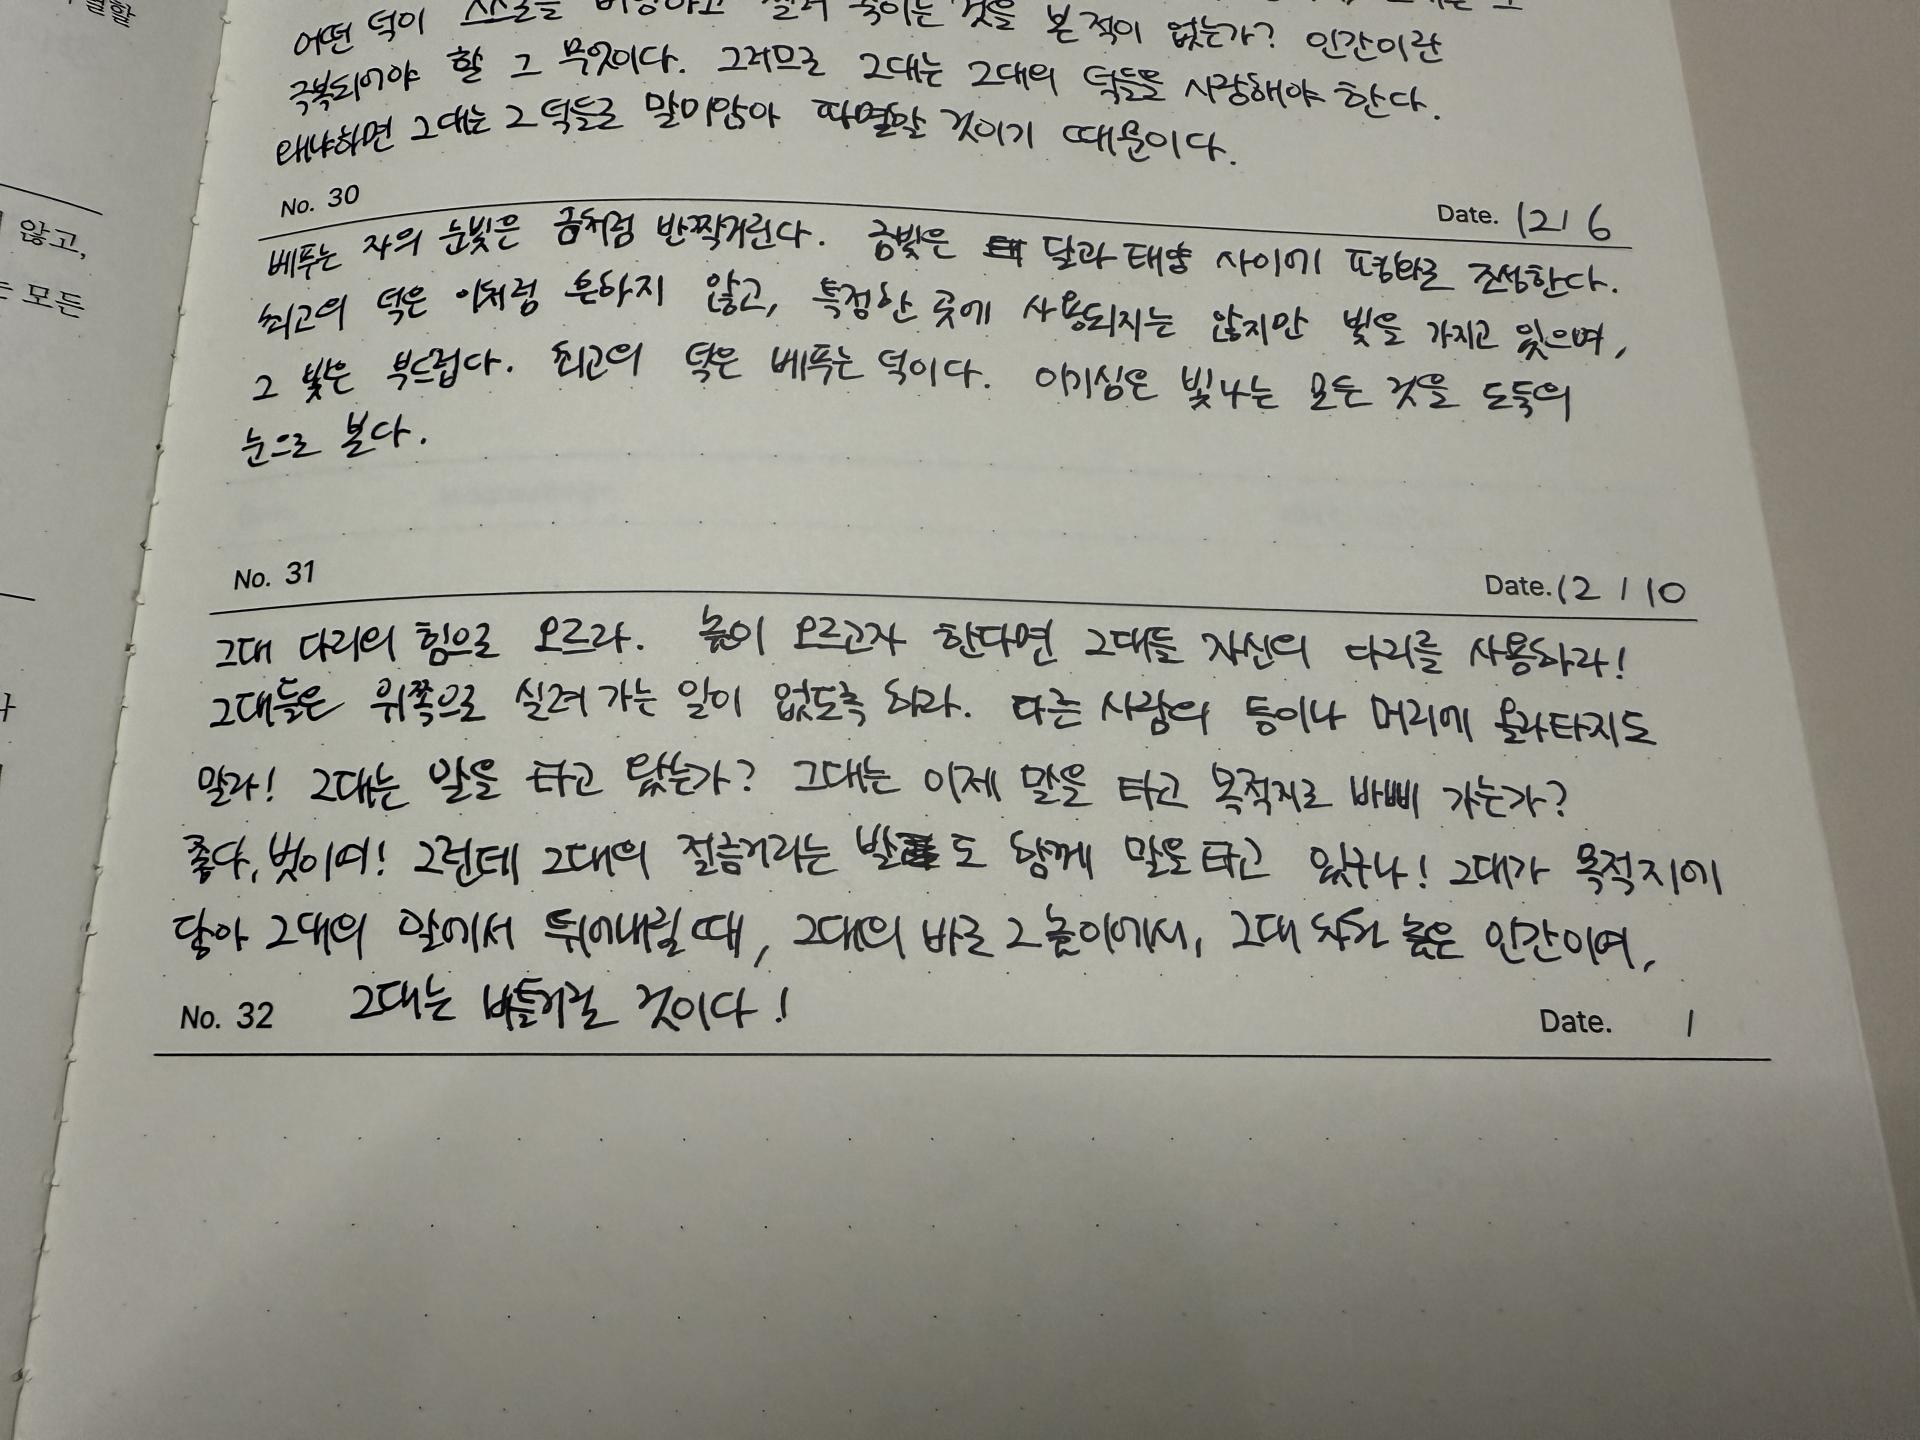 결할
않고,
모든
어떤 덕이 스스로를 것을 본 적이 없는가? 인간이란
극복되어야 할 그 무엇이다. 그러므로 그대는 그대의 덕들을 사랑해야 한다.
왜냐하면 그대는 그 덕들로 말미암아 파멸할 것이기 때문이다.
No. 30 Date. 12 / 6
베푸는 자의 눈빛은 금처럼 반짝거린다. 금빛은 달과 태양 사이에 평화로 조성한다.
최고의 덕은 이처럼 흔하지 않고, 특정한 곳에 사용되지는 않지만 빛을 가지고 있으며,
그 빛은 부드럽다. 최고의 덕은 베푸는 덕이다. 이기심은 빛나는 모든 것을 도둑의
눈으로 본다.
No. 31 Date. 12 / 10
그대 다리의 힘으로 오르라. 높이 오르고자 한다면 그대들 자신의 다리를 사용하라!
그대들은 위쪽으로 실려 가는 일이 없도록 하라. 다른 사람의 등이나 머리에 올라타지도
말라! 그대는 말을 타고 왔는가? 그대는 이제 말을 타고 목적지로 바삐 가는가?
좋다, 벗이여! 그런데 그대의 절름거리는 발도 함께 말을 타고 있구나! 그대가 목적지에
닿아 그대의 말에서 뛰어내릴 때, 그대의 바로 그 높이에서, 그대 높은 인간이여,
그대는 비틀거릴 것이다!
No. 32 Date. /